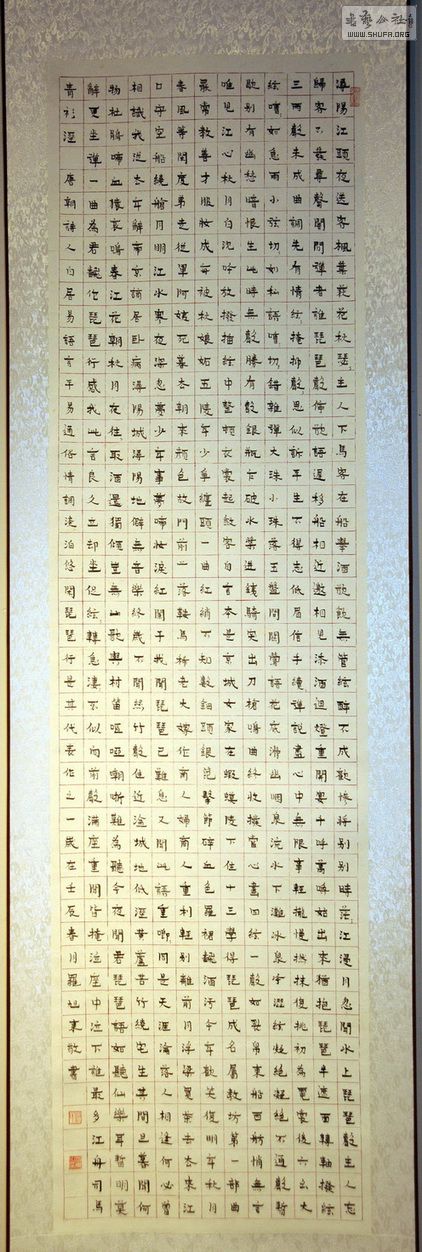 潯陽江頭夜送客楓葉荻花秋瑟瑟主人下馬客在船舉酒欲飲無管絃醉不成歡慘將別別時茫茫江浸月忽聞水上琵琶聲主人忘
歸客不發尋聲闇問彈者誰琵琶聲停欲語遲移船相近邀相見添酒迴燈重開宴千呼萬喚始出來猶抱琵琶半遮面轉軸撥絃
三兩聲未成曲調先有情絃絃掩抑聲聲思似訴平生不得志低眉信手續續彈說盡心中無限事輕攏慢撚抹復挑初為霓裳後六幺大
絃嘈嘈如急雨小絃切切如私語嘈嘈切切錯雜彈大珠小珠落玉盤間關鶯語花底滑幽咽泉流水下灘冰泉冷澀絃凝絕凝絕不通聲暫
歇別有幽愁暗恨生此時無聲勝有聲銀瓶乍破水漿迸鐵騎突出刀槍鳴曲終收撥當心畫四絃一聲如裂帛東船西舫悄無言
唯見江心秋月白沈吟放撥插絃中整頓衣裳起斂容自言本是京城女家在蝦蟆陵下住十三學得琵琶成名屬教坊第一部曲
罷常教善才服妝成每被秋娘妒五陵年少爭纏頭一曲紅綃不知數鈿頭銀篦擊節碎血色羅裙翻酒污今年歡笑復明年秋月
春風等閒度弟走從軍阿姨死暮去朝來顏色故門前冷落鞍馬稀老大嫁作商人婦商人重利輕別離前月浮梁買茶去去來江
口守空船繞船明月江水寒夜深忽夢少年事夢啼妝淚紅闌干我聞琵琶已嘆息又聞此語重唧唧同是天涯淪落人相逢何必曾
相識我從去年辭帝京謫居臥病潯陽城潯陽地僻無音樂終歲不聞絲竹聲住近湓城地低濕黃蘆苦竹繞宅生其間旦暮聞何
物杜鵑啼血猿哀鳴春江花朝秋月夜往往取酒還獨傾豈無山歌與村笛嘔啞嘲哳難為聽今夜聞君琵琶語如聽仙樂耳暫明莫
辭更坐彈一曲為君翻作琵琶行感我此言良久立卻坐促絃絃轉急淒淒不似向前聲滿座重聞皆掩泣座中泣下誰最多江州司馬
青衫濕 唐朝詩人白居易語言平易通俗情調淒泊悠閒琵琶行是其代表作之一歲在壬辰春月羅旭東敬書
WWW.SHUFA.ORG